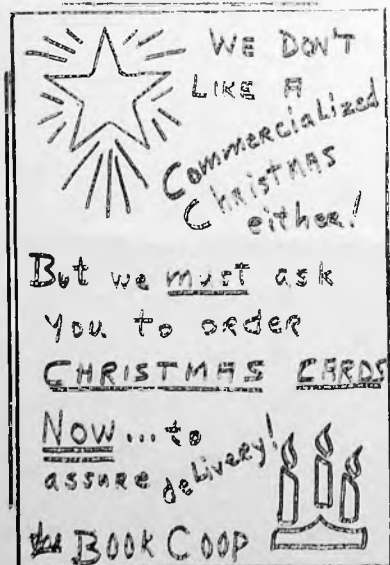 WE DON'T
LIKE A
Commercialized
Christmas
either!
But we must ask
you to order
CHRISTMAS CARDS
NOW... to
assure delivery!
the BOOK COOP